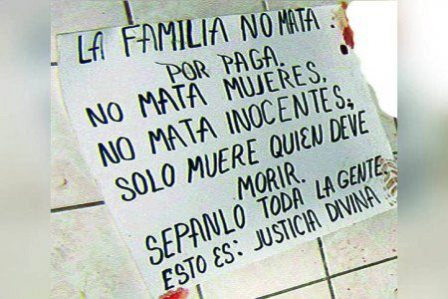 LA FAMILIA NO MATA
POR PAGA.
NO MATA MUJERES.
NO MATA INOCENTES,
SOLO MUERE QUIEN DEVE
MORIR.
SEPANLO TODA LA GENTE.
ESTO ES: JUSTICIA DIVINA